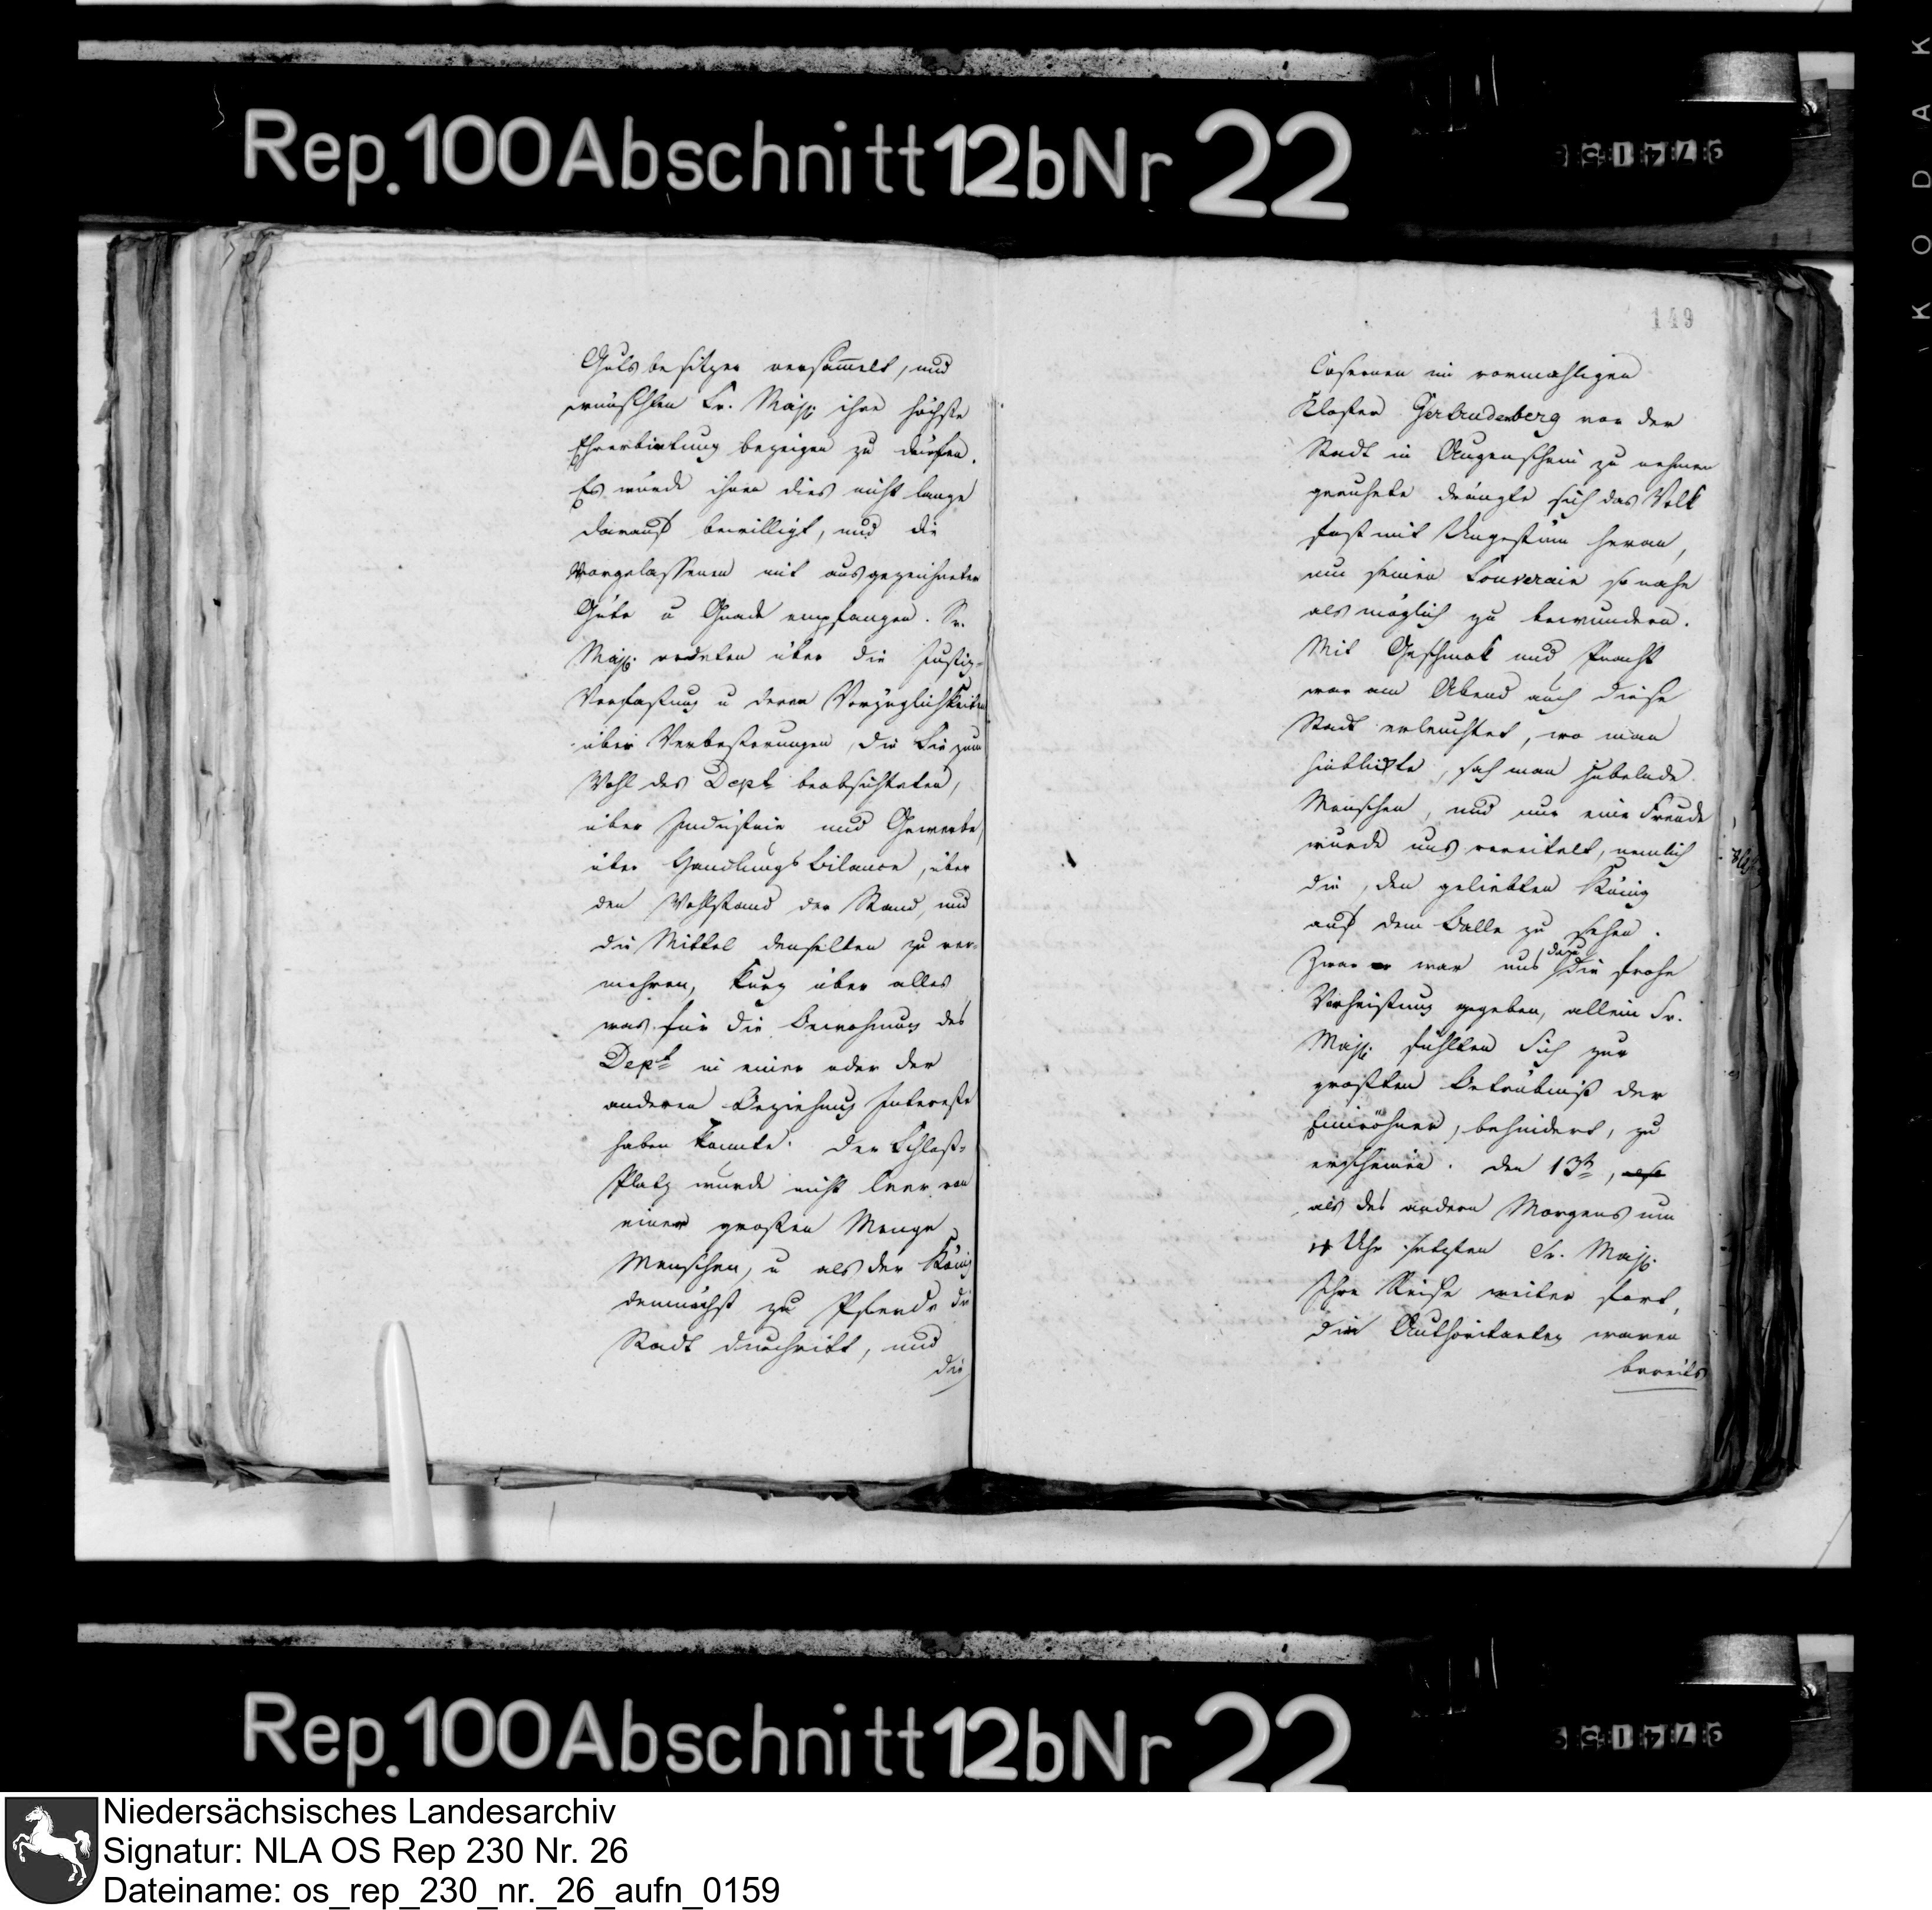 Rep. 100 Abschnitt 12b Nr 22
Gutsbesitzer versam̅elt, und
wünschten Sr. Maj. ihre höchste
Ehrerbietung bezeigen zu dürfen.
Es wurde ihnen dies nicht lange
darauf bewilligt, und die
Vorgelassenen mit ausgezeichneter
Güte u Gnade empfangen. Sr.
Maj. redeten über die Justiz-
Verfaßung u deren Vorzüglichkeiten
über Verbeßerungen, die Sie zum
Wohl des Dept. beabsichteten,
über Industrie und Gewerbe,
über Handlungs Bilance, über
den Wohlstand der Stand, und
die Mittel denselben zu ver-
mehren, kurz über alles
was für die Bewohnung des
Dept. in einer oder der
anderen Beziehung Intereße
haben konnte. Der Schloß-
Platz wurde nicht leer von
einer großen Menge
Menschen, u als der König
demnächst zu Pferde die
Stadt durchritt, und
die
149
Casernen im vormahligen
Kloster Gertrudenberg vor der
Stadt in Augenschein zu nehmen
geruhete drängte sich das Volk
fast mit Ungestüm heran,
um seinen Souverain so nahe
als möglich zu bewundern.
Mit Geschmak und Pracht
war am Abend auch diese
Stadt erleuchtet, wo man
hinblickte, sah man jubelnde
Menschen, und nur eine Freude
wurde uns vereitelt, nemlich
die, den geliebten König
auf dem Balle zu sehen.
dazu
Zwar war uns die frohe
Verheißung gegeben, allein Sr.
Maj. fühlten Sich zur
großten Betrübniß der
Einwohner, behindert, zu
erscheinen. Den 13ten,
als des andern Morgens um
4 Uhr setzten Sr. Maj.
Ihre Reise weiter fort,
die Authoritaeten waren
bereits
Rep. 100 Abschnitt 12b Nr 22
KODAK
Niedersächsisches Landesarchiv
Signatur: NLA OS Rep 230 Nr. 26
Dateiname: os_rep_230_nr._26_aufn_0159